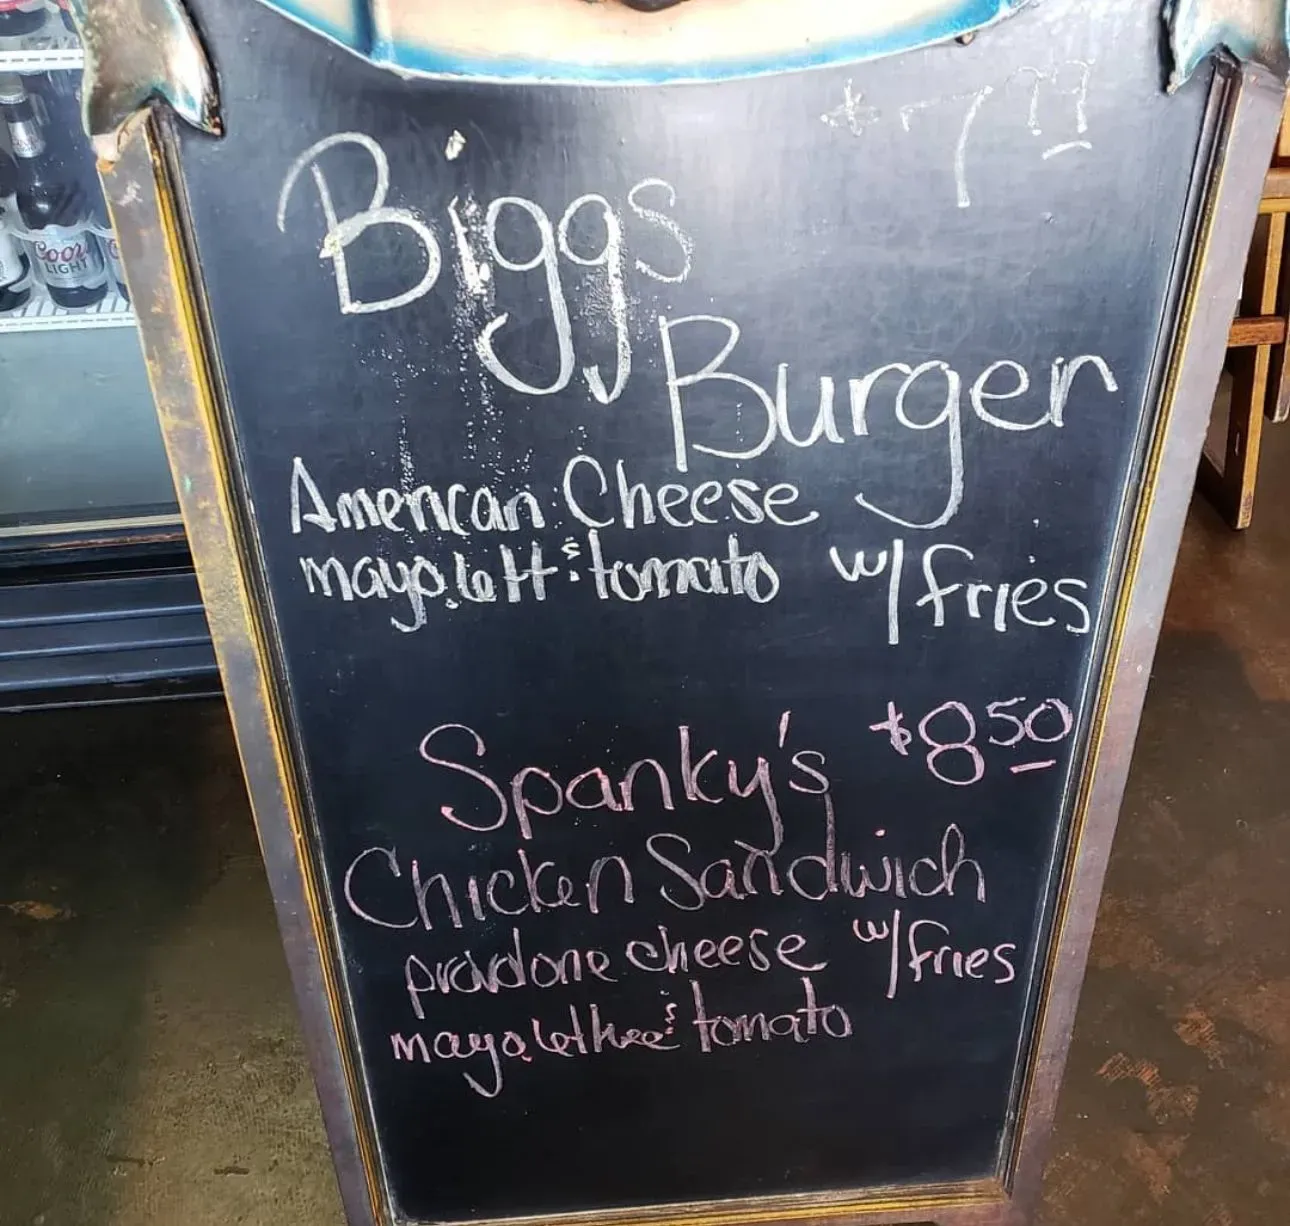 $7.99
Biggs
Burger
American Cheese
mayo. lett & tomato w/ fries
$8.50
Spanky's
Chicken Sandwich
provolone cheese w/ fries
mayo. & tomato
COORS
LIGHT